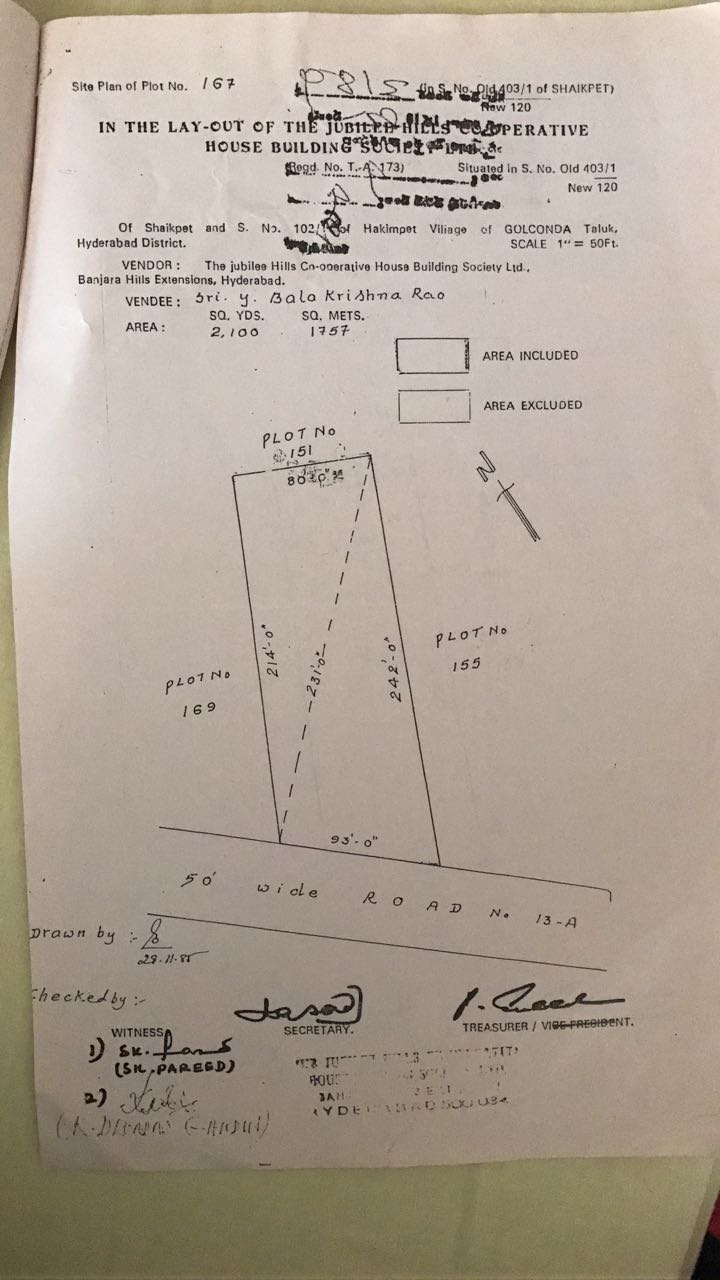 Site Plan of Plot No. 167 (in S. No. Old 403/1 of SHAIKPET)
New 120
IN THE LAY-OUT OF THE JUBILEE HILLS CO-OPERATIVE
HOUSE BUILDING SOCIETY
(Regd. No. T.A. 173) Situated in S. No. Old 403/1
New 120
Of Shaikpet and S. No. 102/ of Hakimpet Village of GOLCONDA Taluk,
Hyderabad District. SCALE 1" = 50Ft.
VENDOR : The jubilee Hills Co-operative House Building Society Ltd.,
Banjara Hills Extensions, Hyderabad.
VENDEE : Sri. y. Bala Krishna Rao
SQ. YDS. SQ. METS.
AREA : 2,100 1757
AREA INCLUDED
AREA EXCLUDED
PLOT No
151
80'-0"
N
214'-0"
231'-0"
242'-0"
PLOT No
155
PLOT No
169
93'-0"
50' wide ROAD No 13-A
Drawn by :-
Checked by :-
WITNESS
SECRETARY.
TREASURER / VICE-PRESIDENT.
1) SK.
(SK. PAREED)
2)